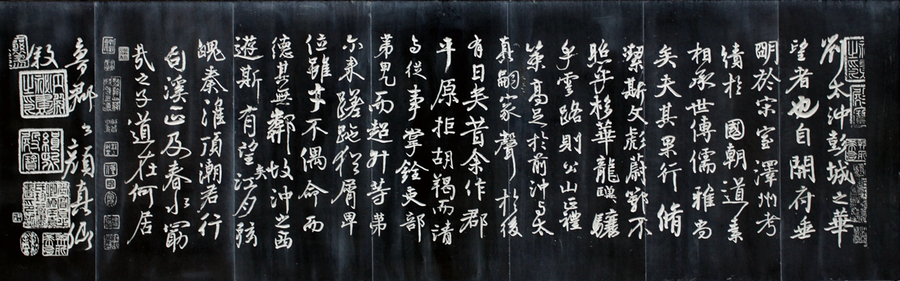 劉太沖彭城之華
望者也自開府垂
明於宗室澤州考
績於國朝道素
相承世傳儒雅尚
矣夫其果行脩
潔斯文彪蔚鄂不
照乎棣華龍驤
乎雲路則公山正禮
策高足於前沖与太
真嗣家聲於後
有日矣昔余作郡
平原拒胡羯而請
与從事掌銓吏部
第而超升等第
尓來蹉跎猶屑卑
位雖才不偶命而
德其無鄰故沖之西
遊斯有望矣江月弦
魄秦淮頂潮君行
句溪正及春水勖
哉之子道在何居
魯郡公顏真卿
叙